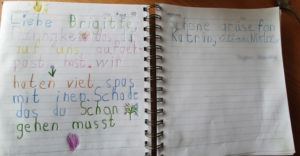 Liebe Brigitte,
das du
auf uns, aufge
past hast. wir
haten viel spas
mit inen. Schade
das du schon
gehen musst
schöne grüse fon
Katrin,